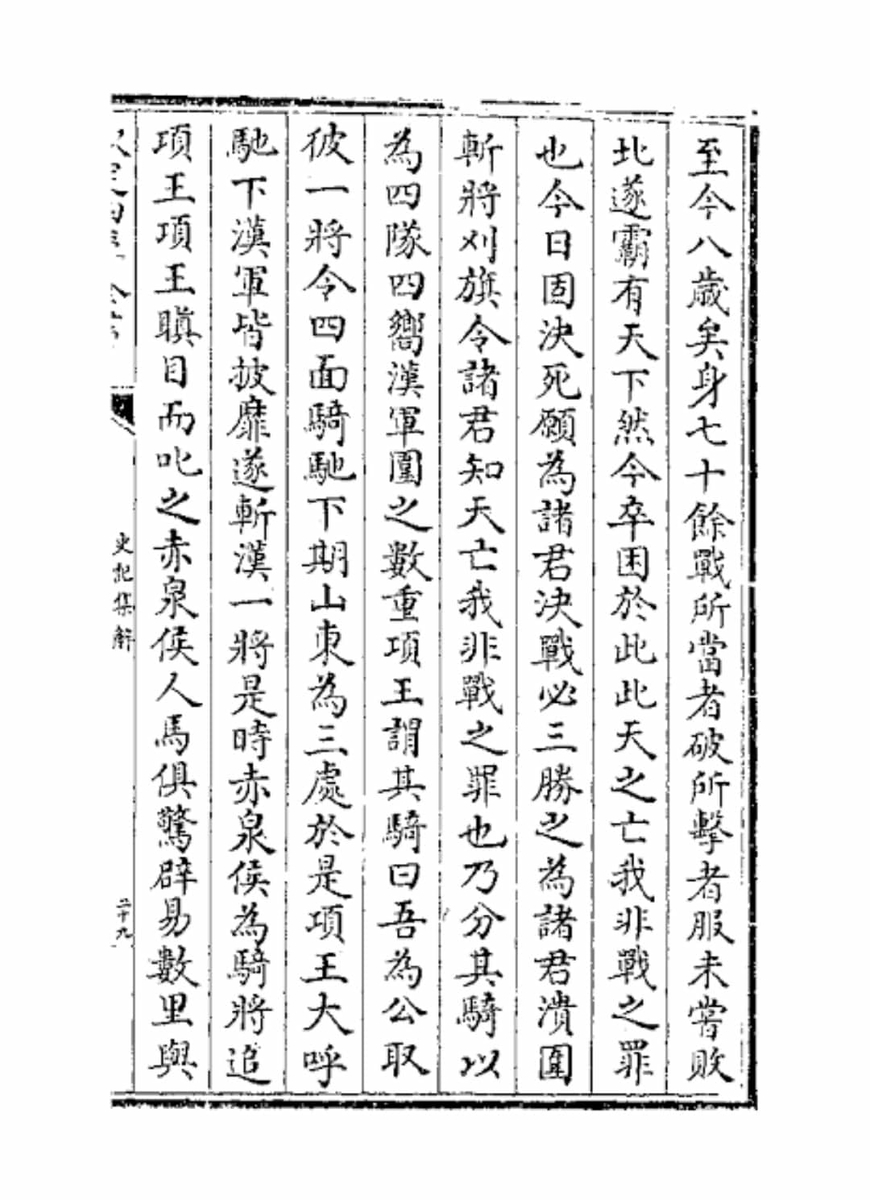 至今八歲矣身七十餘戰所當者破所擊者服未嘗敗
北遂霸有天下然今卒困於此此天之亡我非戰之罪
也今日固決死願為諸君決戰必三勝之為諸君潰圍
斬將刈旗令諸君知天亡我非戰之罪也乃分其騎以
為四隊四嚮漢軍圍之數重項王謂其騎曰吾為公取
彼一將令四面騎馳下期山東為三處於是項王大呼
馳下漢軍皆披靡遂斬漢一將是時赤泉侯為騎將追
項王項王瞋目而叱之赤泉侯人馬俱驚辟易數里與
史記集解
二十九